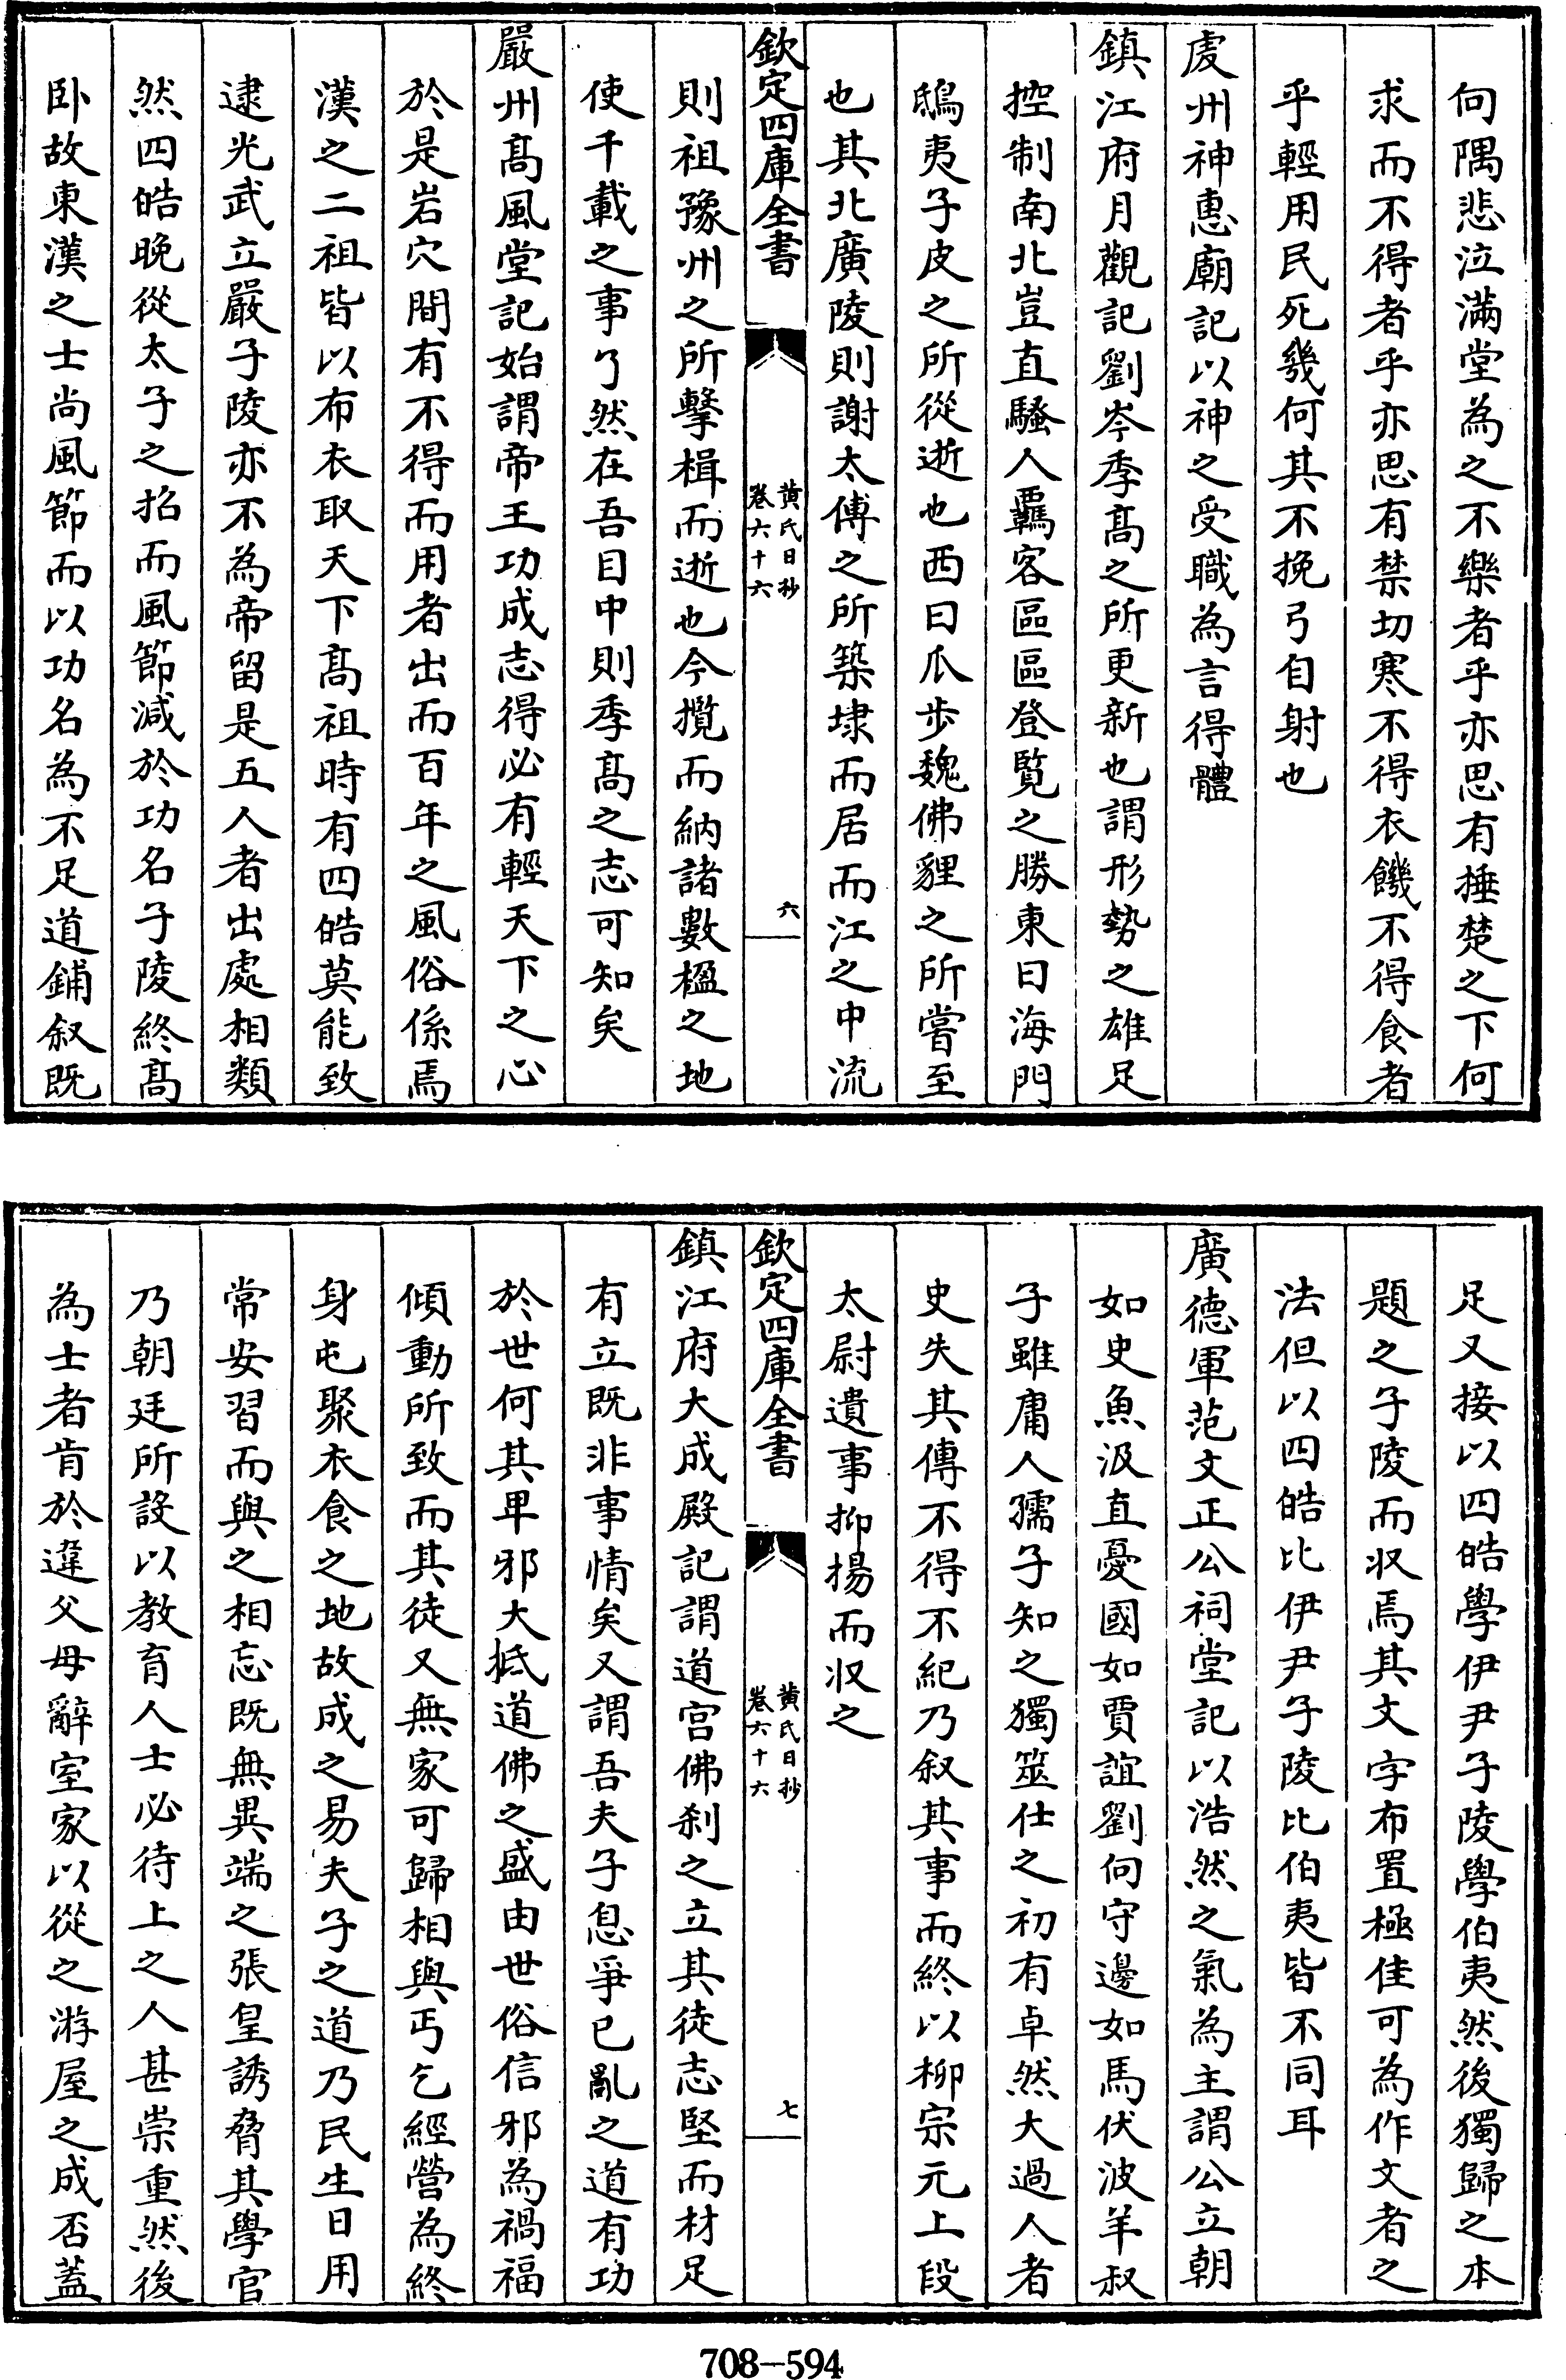 向隅悲泣滿堂為之不樂者乎亦思有捶楚之下何
求而不得者乎亦思有禁切寒不得衣饑不得食者
乎輕用民死幾何其不挽弓自射也
處州神惠廟記以神之受職為言得體
鎮江府月觀記劉岑季髙之所更新也謂形勢之雄足
控制南北豈直騷人覊客區區登覧之勝東曰海門
鴟夷子皮之所從逝也西曰瓜步魏佛貍之所嘗至
也其北廣陵則謝太傅之所築埭而居而江之中流
欽定四庫全書
黄氏日抄
卷六十六
六
則祖豫州之所擊楫而逝也今攬而納諸數楹之地
使千載之事了然在吾目中則季髙之志可知矣
嚴州髙風堂記始謂帝王功成志得必有輕天下之心
於是岩穴間有不得而用者出而百年之風俗係焉
漢之二祖皆以布衣取天下髙祖時有四皓莫能致
逮光武立嚴子陵亦不為帝留是五人者出處相類
然四皓晚從太子之招而風節減於功名子陵終髙
卧故東漢之士尚風節而以功名為不足道鋪叙既
足又接以四皓學伊尹子陵學伯夷然後獨歸之本
題之子陵而収焉其文字布置極佳可為作文者之
法但以四皓比伊尹子陵比伯夷皆不同耳
廣德軍范文正公祠堂記以浩然之氣為主謂公立朝
如史魚汲直憂國如賈誼劉向守邊如馬伏波羊叔
子雖庸人孺子知之獨筮仕之初有卓然大過人者
史失其傳不得不紀乃叙其事而終以柳宗元上段
太尉遺事抑揚而収之
欽定四庫全書
黄氏日抄
卷六十六
七
鎮江府大成殿記謂道宫佛刹之立其徒志堅而材足
有立既非事情矣又謂吾夫子息爭已亂之道有功
於世何其卑邪大抵道佛之盛由世俗信邪為禍福
傾動所致而其徒又無家可歸相與丐乞經營為終
身屯聚衣食之地故成之易夫子之道乃民生日用
常安習而與之相忘既無異端之張皇誘脅其學官
乃朝廷所設以教育人士必待上之人甚崇重然後
為士者肯於違父母辭室家以從之游屋之成否蓋
708-594